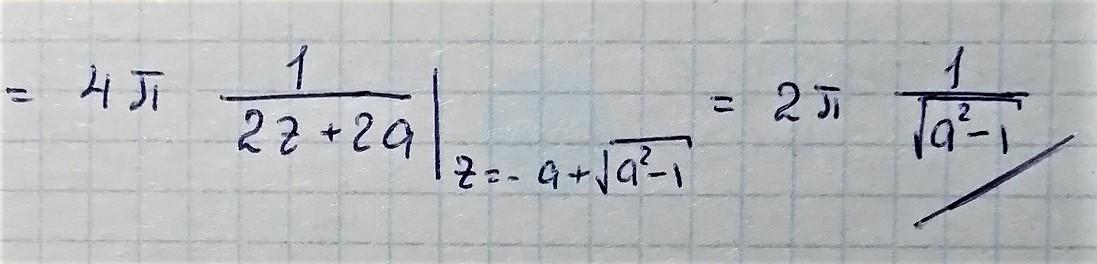 = 4π 1/(2z+2a) |z=-a+√(a²-1) = 2π 1/√(a²-1)